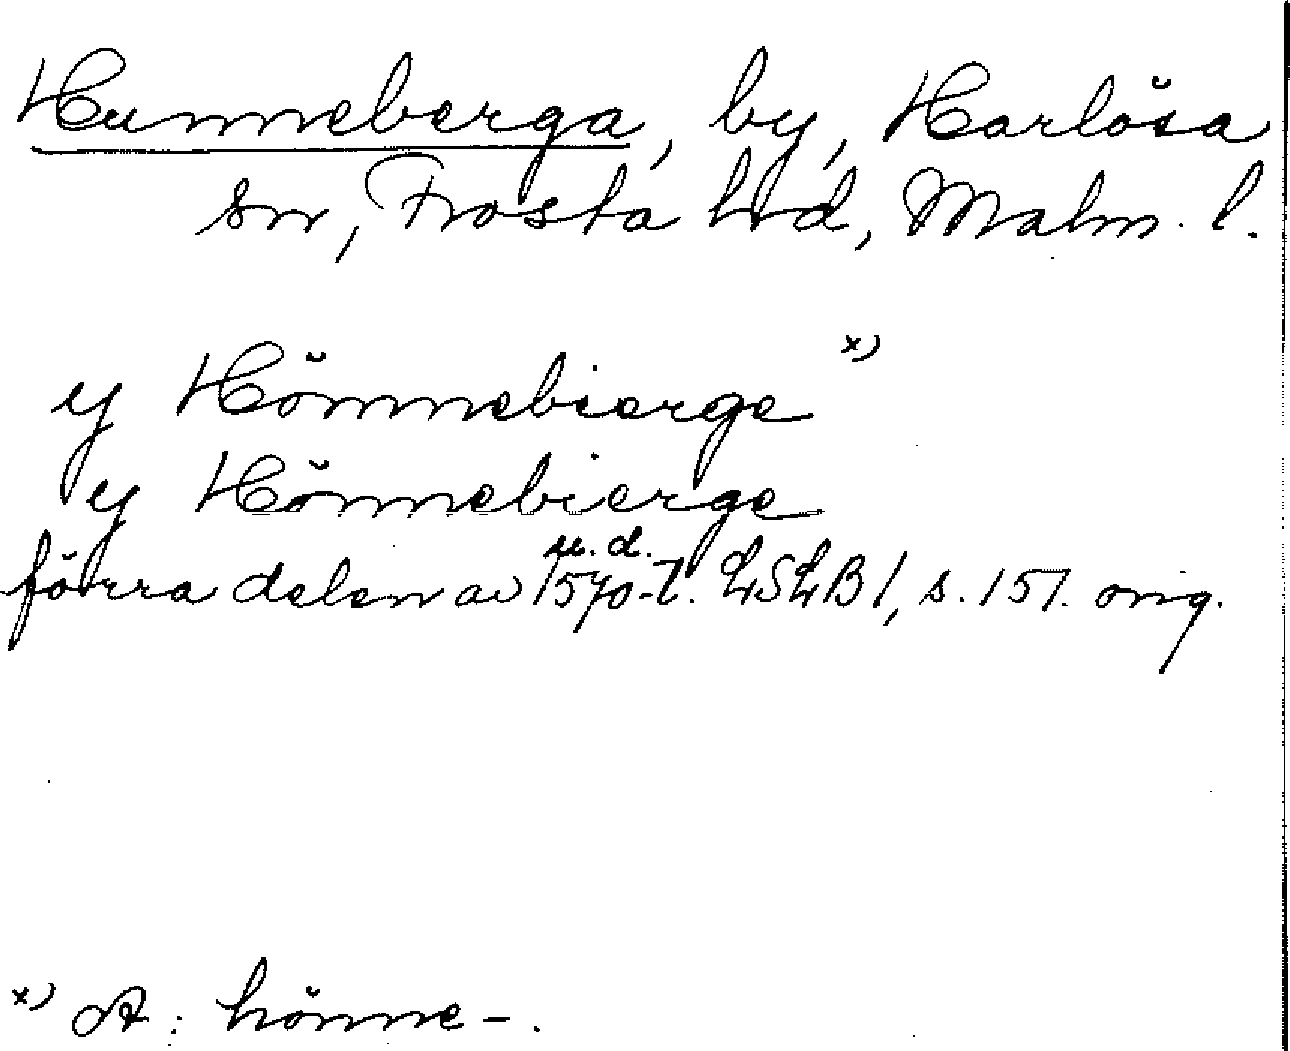 Hunneberga, by, Harlösa
sn, Frosta hd, Malm. l.
y Hönnebierge x)
y Hönnebierge
u. d.
förra delen av 1570-t. LSLB 1, s. 151. orig.
x) A: hönne-.